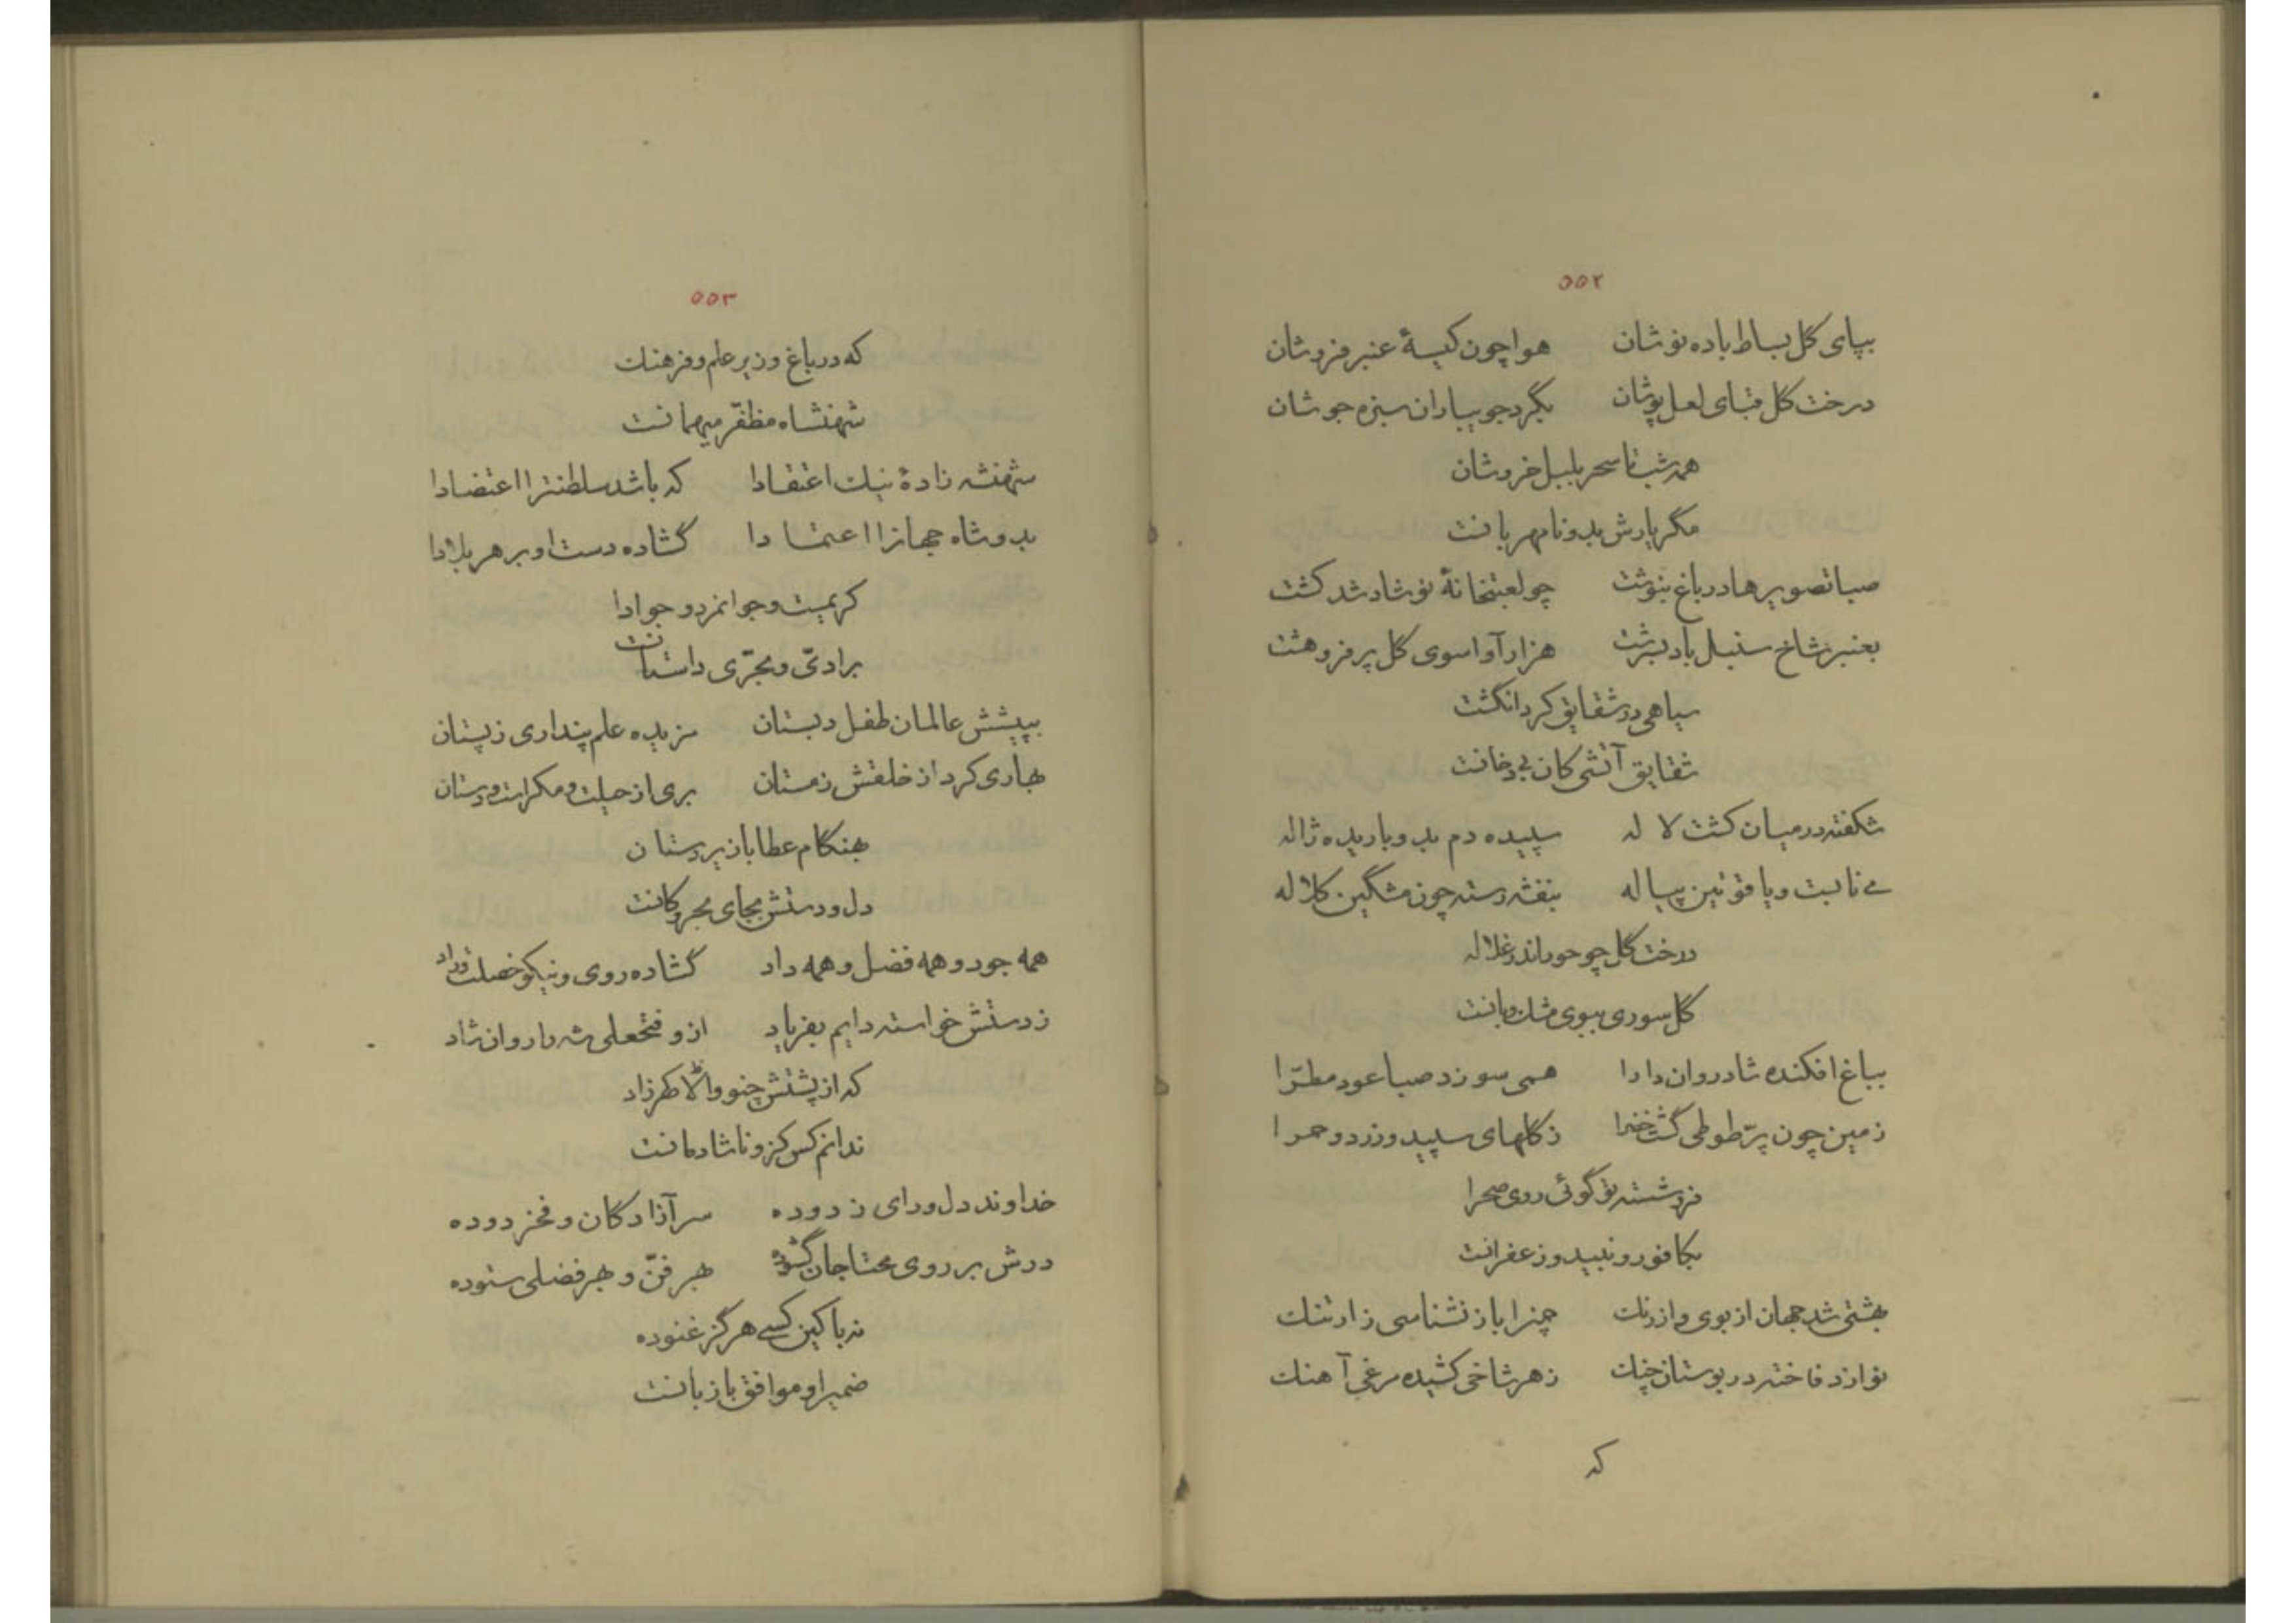 ۵۵۲
بپای گل بساط باده نوشان هوا چون کیسهٔ عنبر فروشان
درخت گل قبای لعل پوشان بگرد جویباران سبزه جوشان
همه شب تا سحر بلبل خروشان
مگر یارش بدو نامهربانت
صبا تصویرها در باغ بنوشت چو لعبتخانهٔ نوشاد شد کشت
بعنبر شاخ سنبل باد بسرشت هزار آوا سوی گل پر فرو هشت
سیاهی در شقایق کرد انگشت
شقایق آتشی کان بی دخانت
شکفته در میان کشت لاله سپیده دم بدو باریده ژاله
می نابست و یاقوتین پیاله بنفشه رسته چون مشگین کلاله
درخت گل چو حور اندر غلاله
گل سوری ببوی مشك و بانت
بباغ افکنده شادروان دارا همی سوزد صبا عود مطرّا
زمین چون پرّ طوطی گشت خضرا ز گلهای سپید و زرد و حمرا
فروشسته تو گوئی روی صحرا
بکافور و نبید و زعفرانت
بهشتی شد جهان از بوی و از رنك چمن را باز نشناسی ز ارتنك
نوازد فاخته در بوستان چنك ز هر شاخی کشیده مرغی آهنك
که
۵۵۳
که در باغ وزیر علم و فرهنك
شهنشاه مظفّر میهمانت
شهنشه زادهٔ نیك اعتقادا که باشد سلطنترا اعتضادا
بدو شاه جهانرا اعتمادا گشاده دست او بر هر بلادا
کریمست و جوانمرد و جوادا
برادیّ و بحرّی داستانت
به پیشش عالمان طفل دبستان مزیده علم پنداری ز پستان
بهاری کرد از خلقش زمستان بری از حیلت و مکر است و دستان
بهنگام عطا باز بردستان
دل و دستش بجای بحر و کانت
همه جود و همه فضل و همه داد گشاده روی و نیکو خصلت و راد
ز دستش خواسته دایم بفریاد ازو فتحعلی شه را روان شاد
که از پشتش چنو والا گهر زاد
ندانم کس کزو ناشادمانت
خداوند دل و رای زدوده سر آزادگان و فخر دوده
درش بر روی محتاجان گشوده بهر فنّ و بهر فضلی ستوده
نه با کین کسی هرگز غنوده
ضمیر او موافق با زبانت